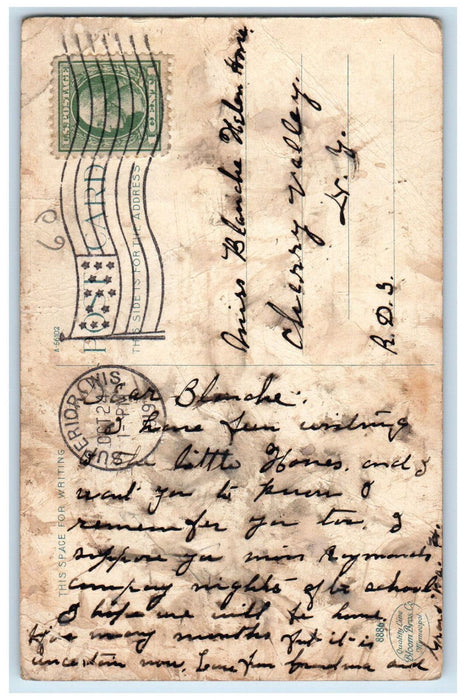 POST CARD
THIS SIDE IS FOR THE ADDRESS
A-56092
U.S. POSTAGE
1 CENT 1
SUPERIOR, WIS.
OCT 2
Miss Blanche Helen
Cherry Valley.
N. Y.
R.D.3.
THIS SPACE FOR WRITING
Dear Blanche:
I have been writing
the little and I
want you to know I
remember you too. I
suppose you miss Raymond's
company nights after school.
I hope we will be home
before many months but it is
uncertain now. Love from Grandma and
Grand
8886
Quality Line
Bloom Bros. Co.
Minneapolis